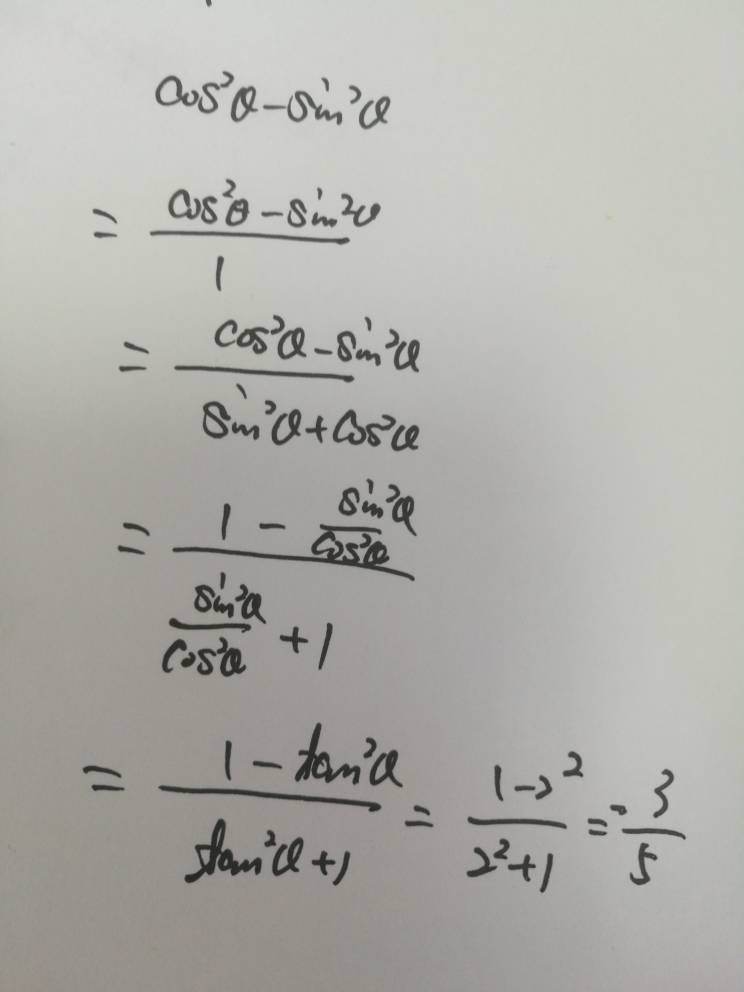 cos²θ-sin²θ
= (cos²θ-sin²θ)/1
= (cos²θ-sin²θ)/(sin²θ+cos²θ)
= (1 - sin²θ/cos²θ)/(sin²θ/cos²θ + 1)
= (1-tan²θ)/(tan²θ+1) = (1-2²)/(2²+1) = -3/5